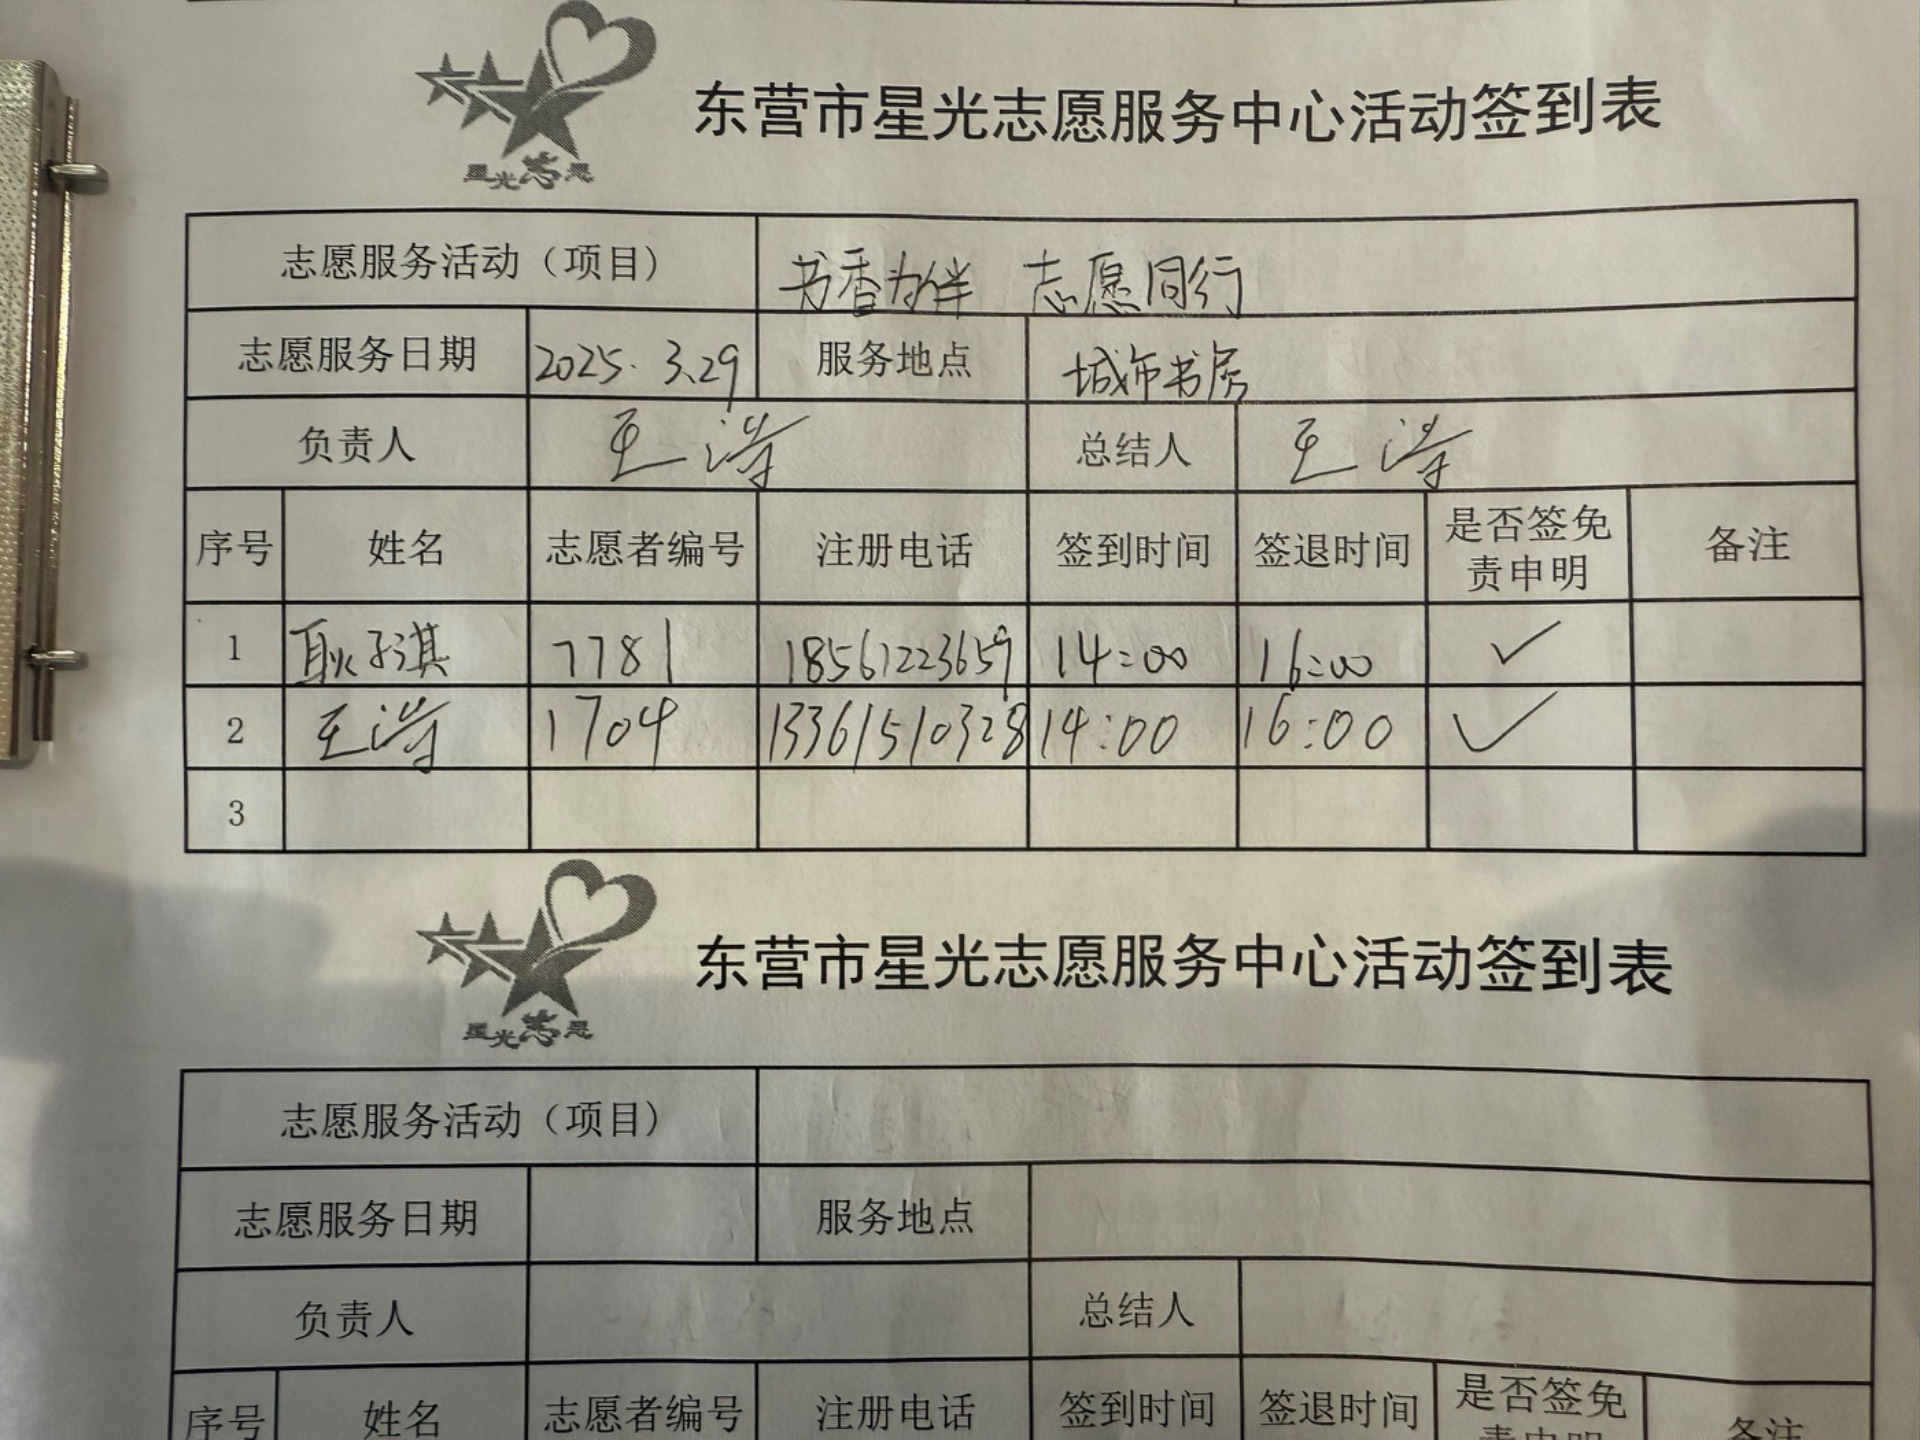 星光志愿
东营市星光志愿服务中心活动签到表
志愿服务活动（项目） 书香为伴 志愿同行
志愿服务日期 2025.3.29 服务地点 城市书房
负责人 王涛 总结人 王涛
序号 姓名 志愿者编号 注册电话 签到时间 签退时间 是否签免责申明 备注
1 耿子淇 7781 18561223659 14:00 16:00 ✓
2 王涛 1704 13361510328 14:00 16:00 ✓
3
星光志愿
东营市星光志愿服务中心活动签到表
志愿服务活动（项目）
志愿服务日期 服务地点
负责人 总结人
序号 姓名 志愿者编号 注册电话 签到时间 签退时间 是否签免责申明 备注